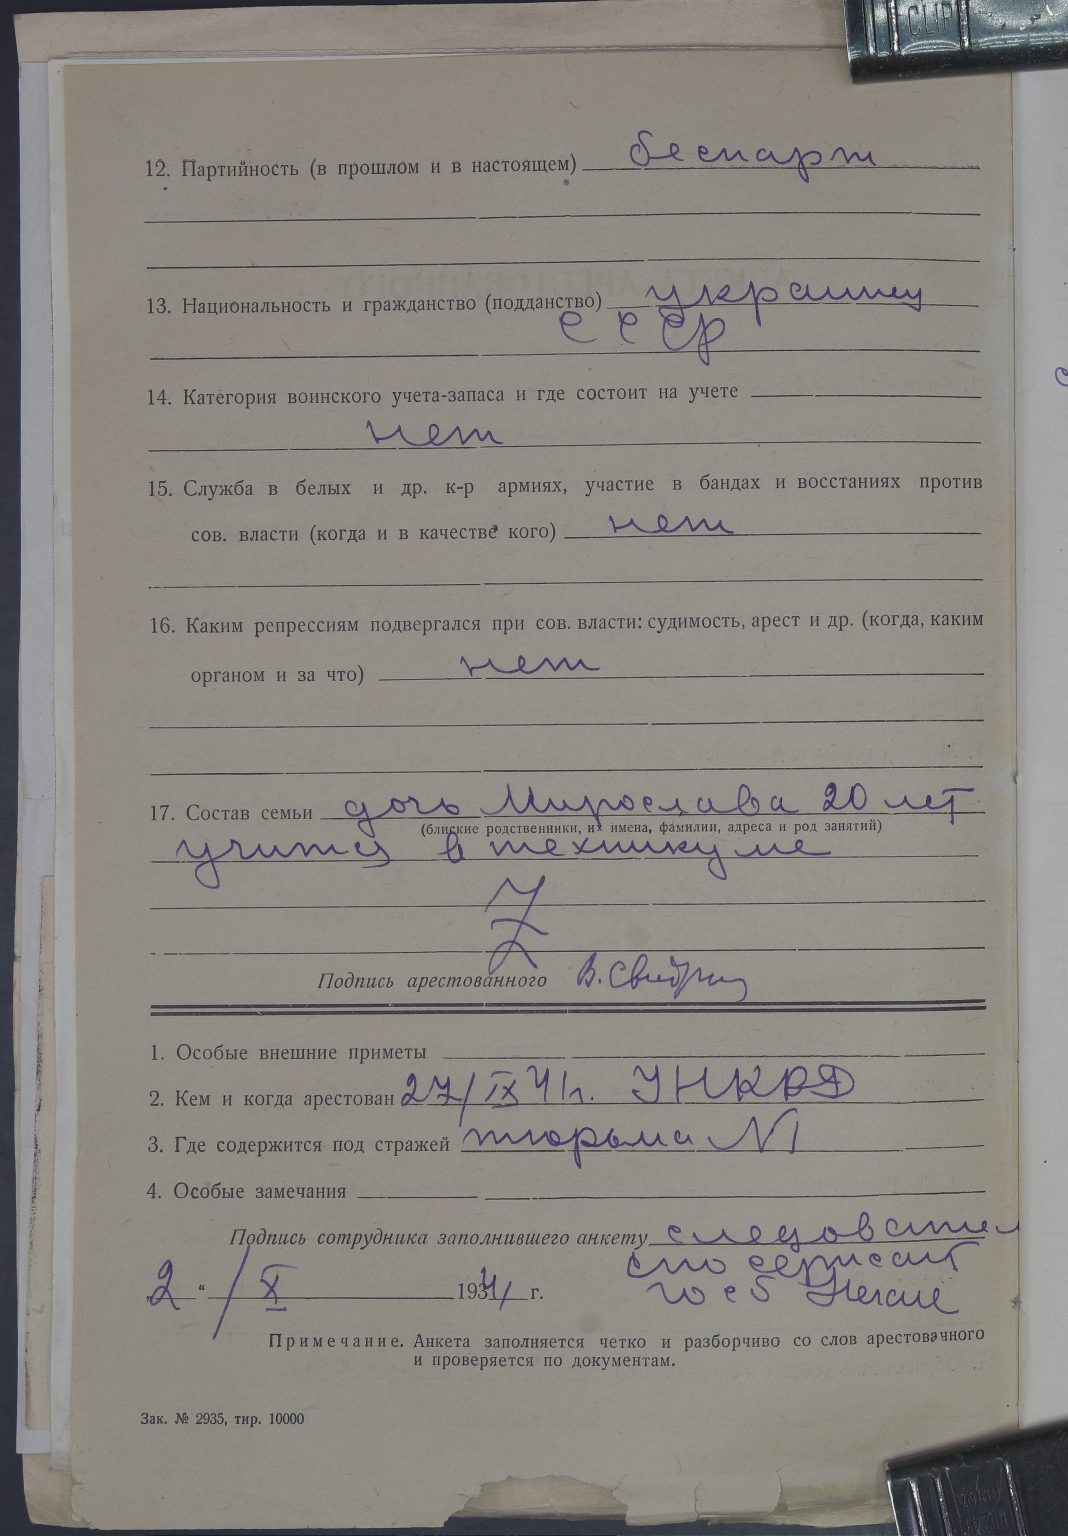 CLIP
12. Партийность (в прошлом и в настоящем) беспарт
13. Национальность и гражданство (подданство) украинец
СССР
14. Категория воинского учета-запаса и где состоит на учете
нет
15. Служба в белых и др. к-р армиях, участие в бандах и восстаниях против
сов. власти (когда и в качестве кого) нет
16. Каким репрессиям подвергался при сов. власти: судимость, арест и др. (когда, каким
органом и за что) нет
17. Состав семьи дочь Мирослава 20 лет
(близкие родственники, их имена, фамилии, адреса и род занятий)
учится в техникуме
Подпись арестованного В.
1. Особые внешние приметы
2. Кем и когда арестован 27/IX 41г. УНКВД
3. Где содержится под стражей тюрьма N1
4. Особые замечания
Подпись сотрудника заполнившего анкету следовател
сержант
госб
„2“ / X 1941 г.
Примечание. Анкета заполняется четко и разборчиво со слов арестованного
и проверяется по документам.
Зак. № 2935, тир. 10000